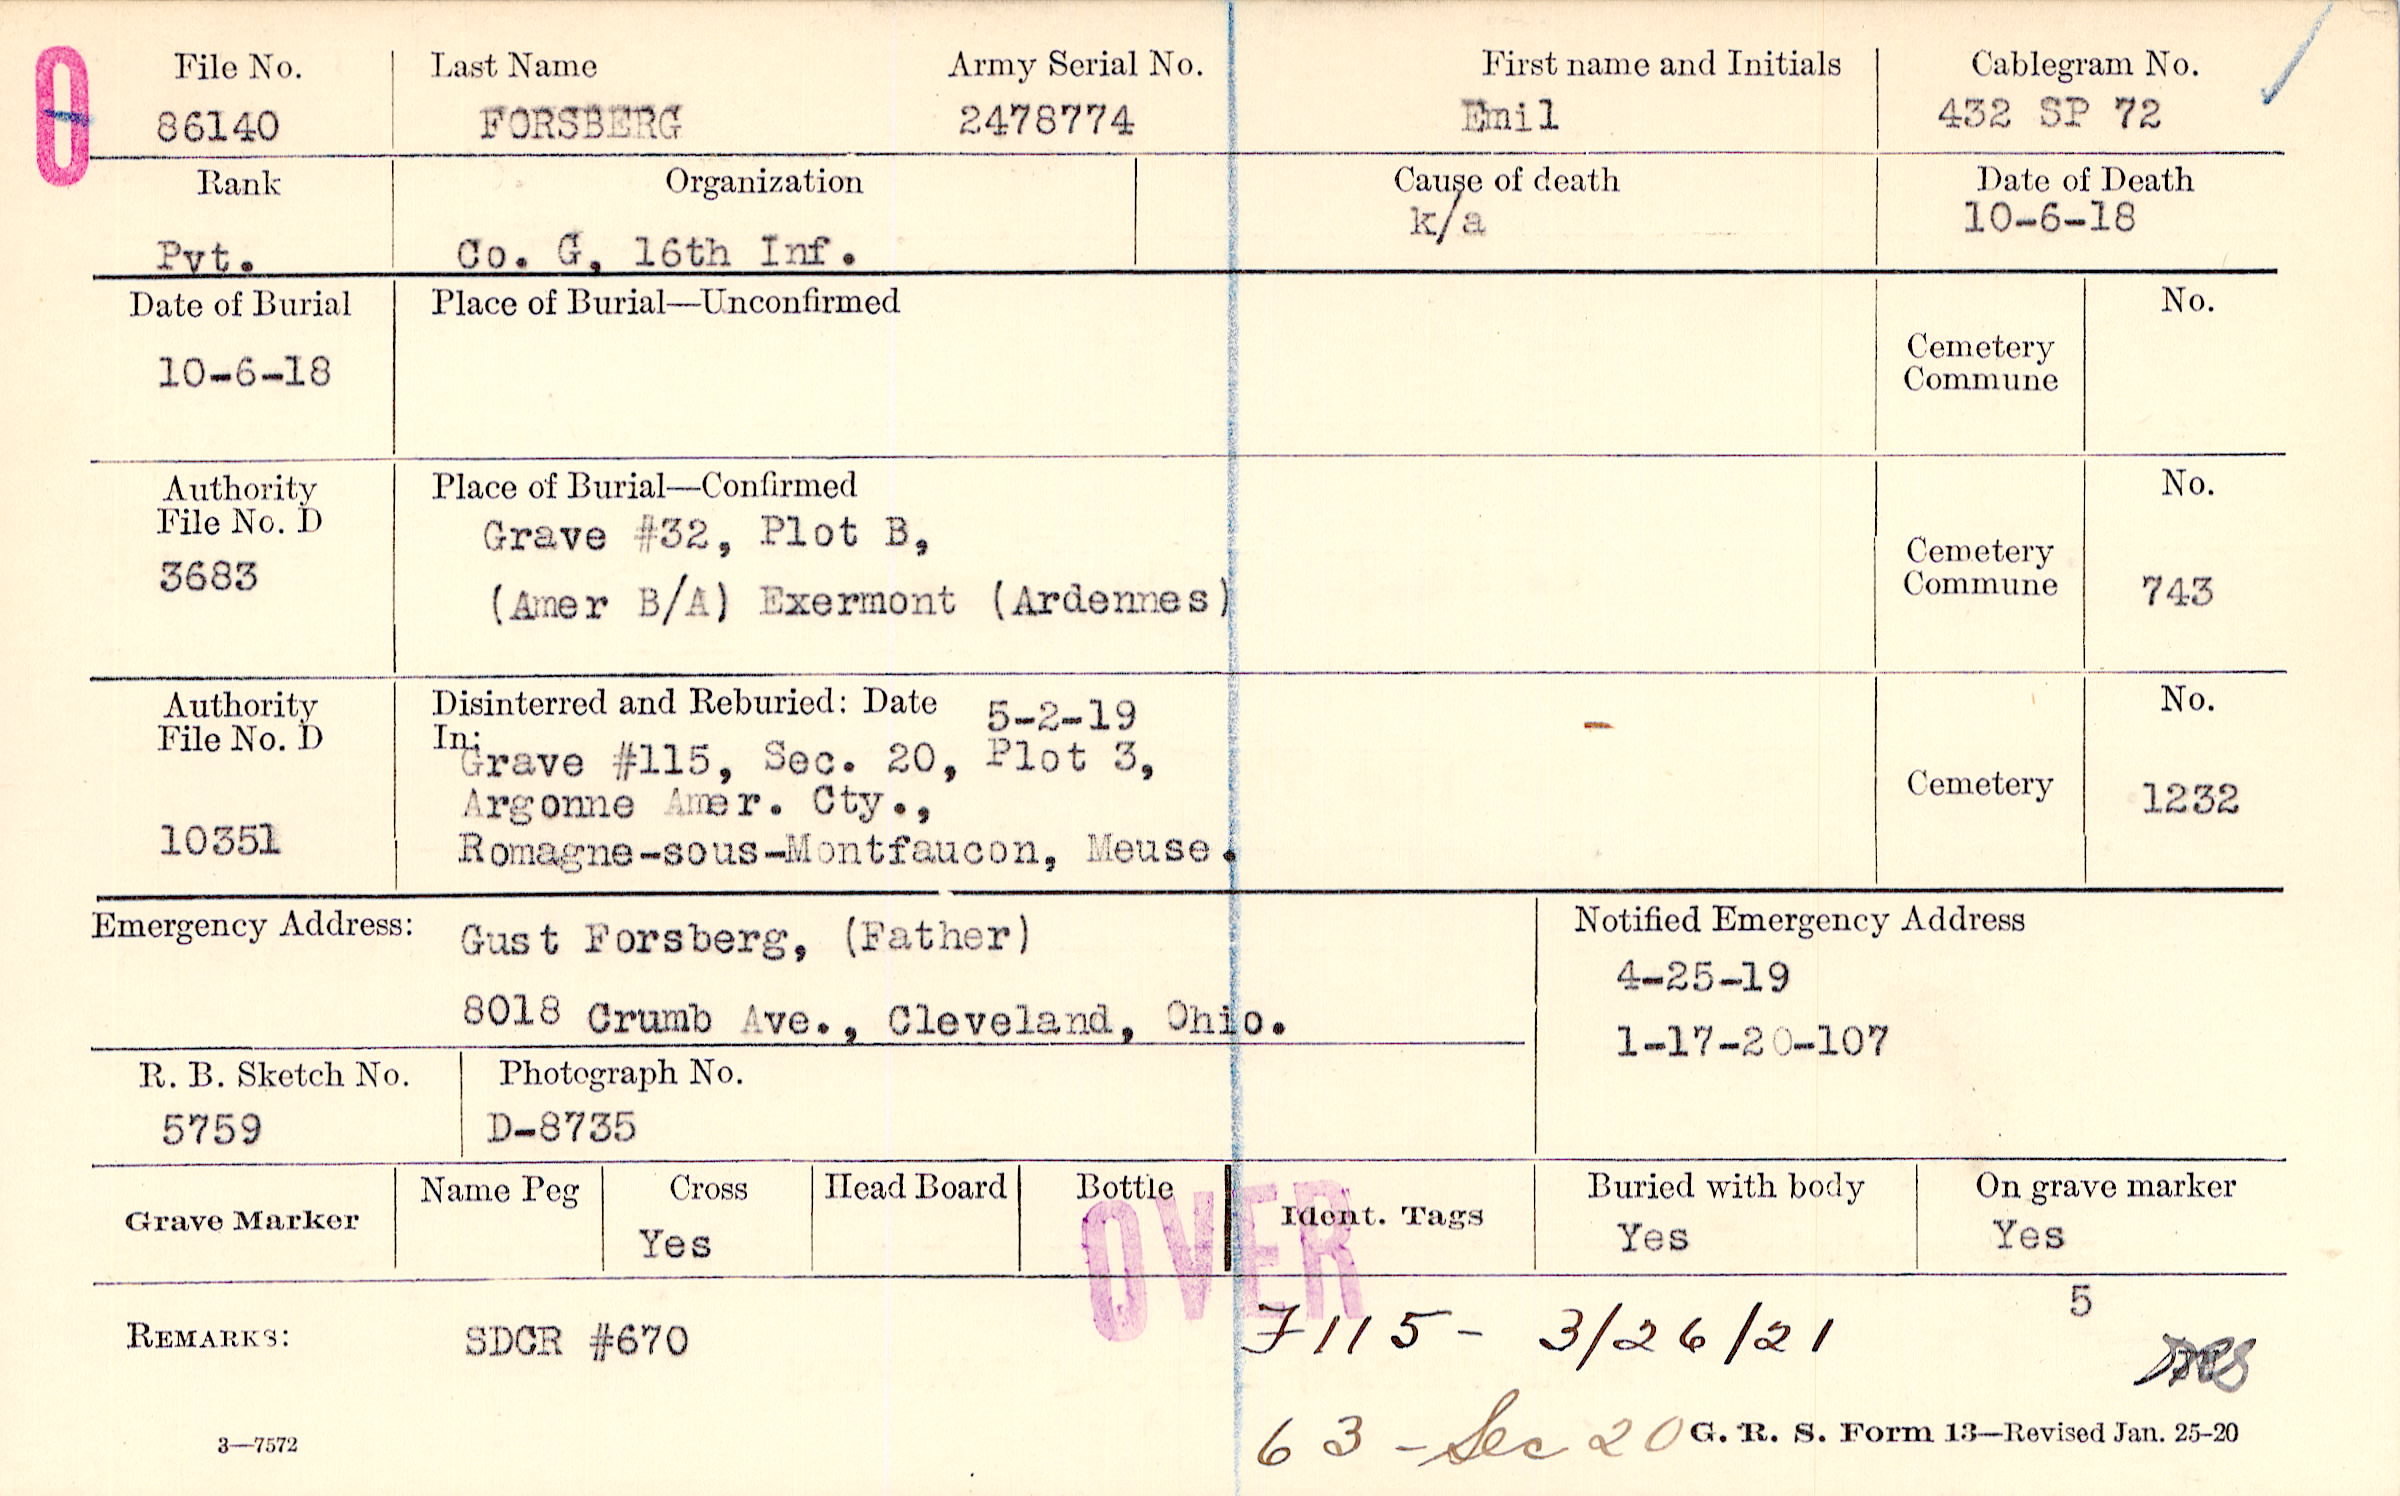 0
File No. Last Name Army Serial No. First name and Initials Cablegram No.
86140 FORSBERG 2478774 Emil 432 SP 72
Rank Organization Cause of death Date of Death
Pvt. Co. G, 16th Inf. k/a 10-6-18
Date of Burial Place of Burial—Unconfirmed No.
10-6-18
Cemetery
Commune
Authority Place of Burial—Confirmed No.
File No. D
3683
Grave #32, Plot B,
(Amer B/A) Exermont (Ardennes)
Cemetery
Commune 743
Authority Disinterred and Reburied: Date 5-2-19 No.
File No. D In:
Grave #115, Sec. 20, Plot 3,
Argonne Amer. Cty.,
Cemetery 1232
10351 Romagne-sous-Montfaucon, Meuse.
Emergency Address: Gust Forsberg, (Father)
8018 Crumb Ave., Cleveland, Ohio.
Notified Emergency Address
4-25-19
1-17-20-107
R. B. Sketch No. Photograph No.
5759 D-8735
Grave Marker Name Peg Cross Head Board Bottle Ident. Tags Buried with body On grave marker
Yes Yes Yes
OVER
5
REMARKS: SDCR #670 7115- 3/26/21
63 - Sec 20
3—7572 G. R. S. Form 13—Revised Jan. 25-20